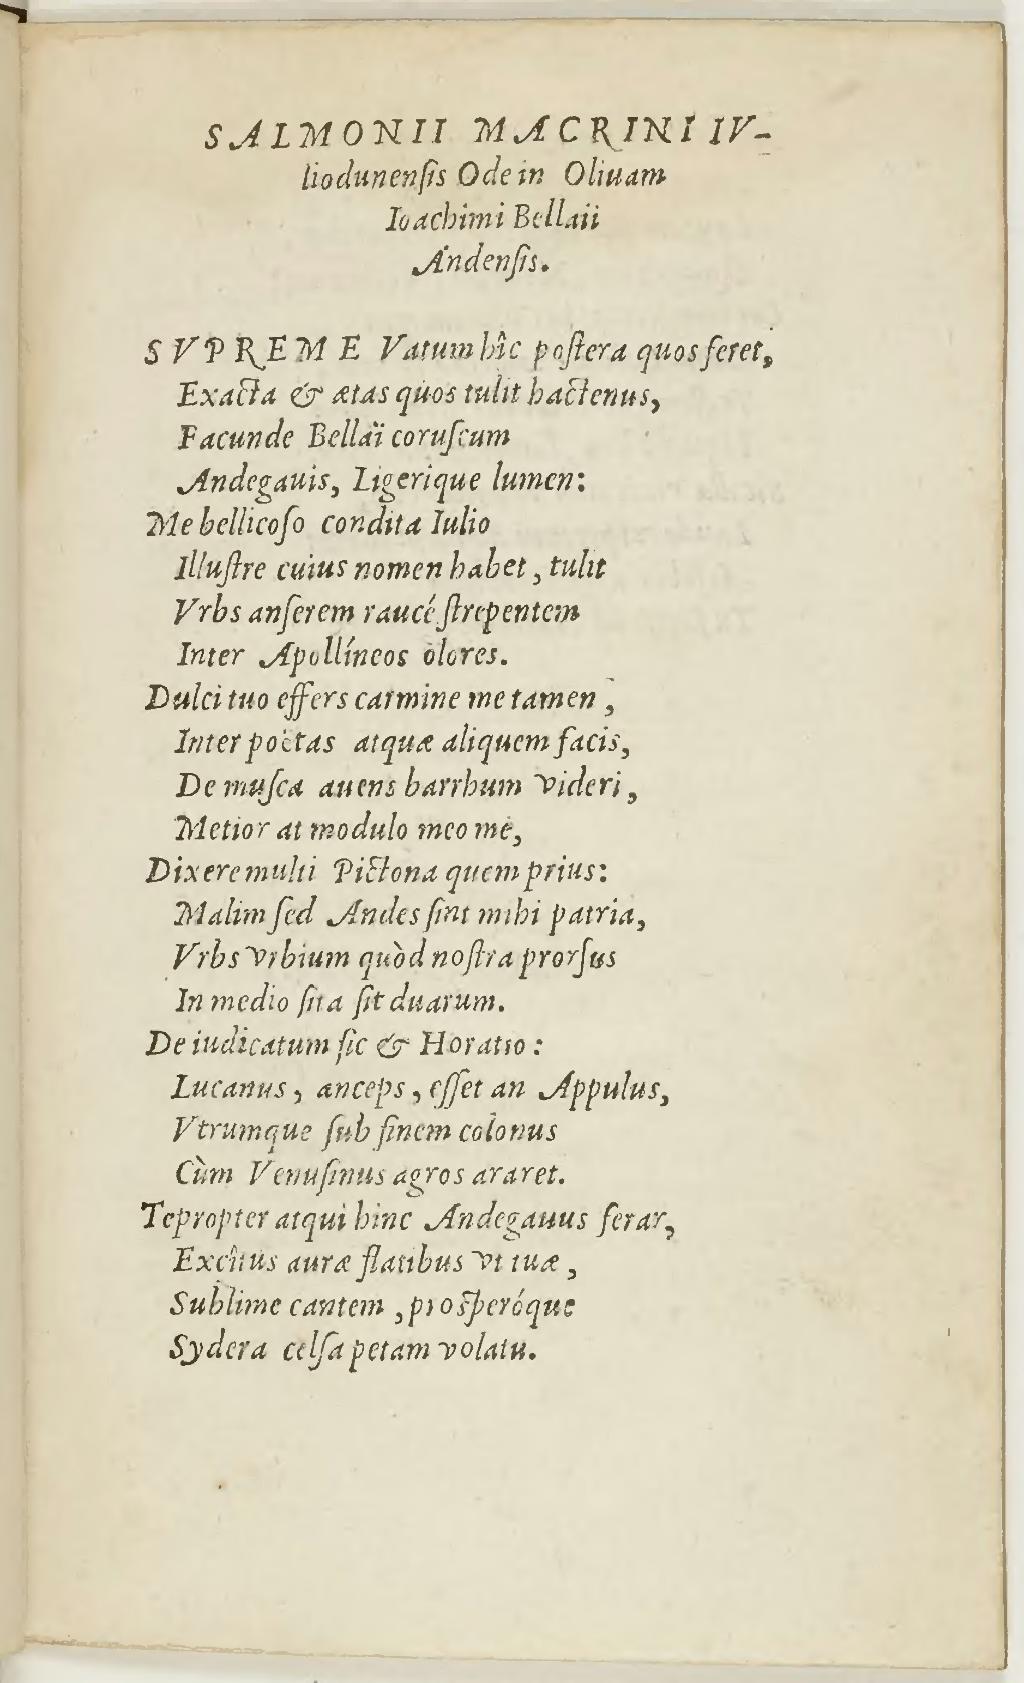 SALMONII MACRINI IV-
liodunenſis Ode in Oliuam
Ioachimi Bellaii
Andenſis.
SVPREME Vatum hîc poſtera quos feret,
Exacta & ætas quos tulit hactenus,
Facunde Bellaï coruſcum
Andegauis, Ligerique lumen:
Me bellicoſo condita Iulio
Illuſtre cuius nomen habet, tulit
Vrbs anſerem raucé ſtrepentem
Inter Apollíneos olores.
Dulci tuo effers carmine me tamen,
Inter poëtas atquæ aliquem facis,
De muſca auens barrhum videri,
Metior at modulo meo me,
Dixere multi Pictona quem prius:
Malim ſed Andes ſint mihi patria,
Vrbs vrbium quòd noſtra prorſus
In medio ſita ſit duarum.
De iudicatum ſic & Horatio:
Lucanus, anceps, eſſet an Appulus,
Vtrumque ſub finem colonus
Cùm Venuſinus agros araret.
Te propter atqui hinc Andegauus ferar,
Excîtus auræ flatibus vt tuæ,
Sublime cantem, proſperóque
Sydera celſa petam volatu.